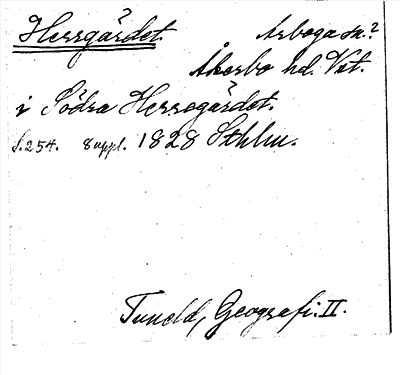 Herrgärdet. Arboga sn.?
Åkerbo hd. Vst.
i Södra Herregärdet.
S. 254. 8 uppl. 1828 Sthlm.
Tuneld, Geografi. II.